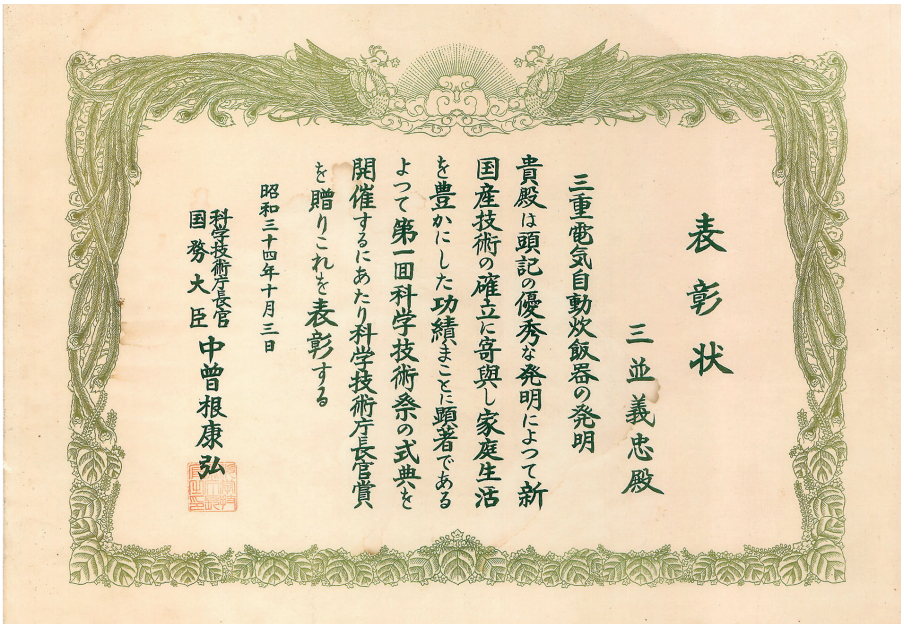 表彰状
三並義忠殿
三重電気自動炊飯器の発明
貴殿は頭記の優秀な発明によつて新
国産技術の確立に寄與し家庭生活
を豊かにした功績まことに顕著である
よつて第一回科学技術祭の式典を
開催するにあたり科学技術庁長官賞
を贈りこれを表彰する
昭和三十四年十月三日
科学技術庁長官
国務大臣 中曽根康弘